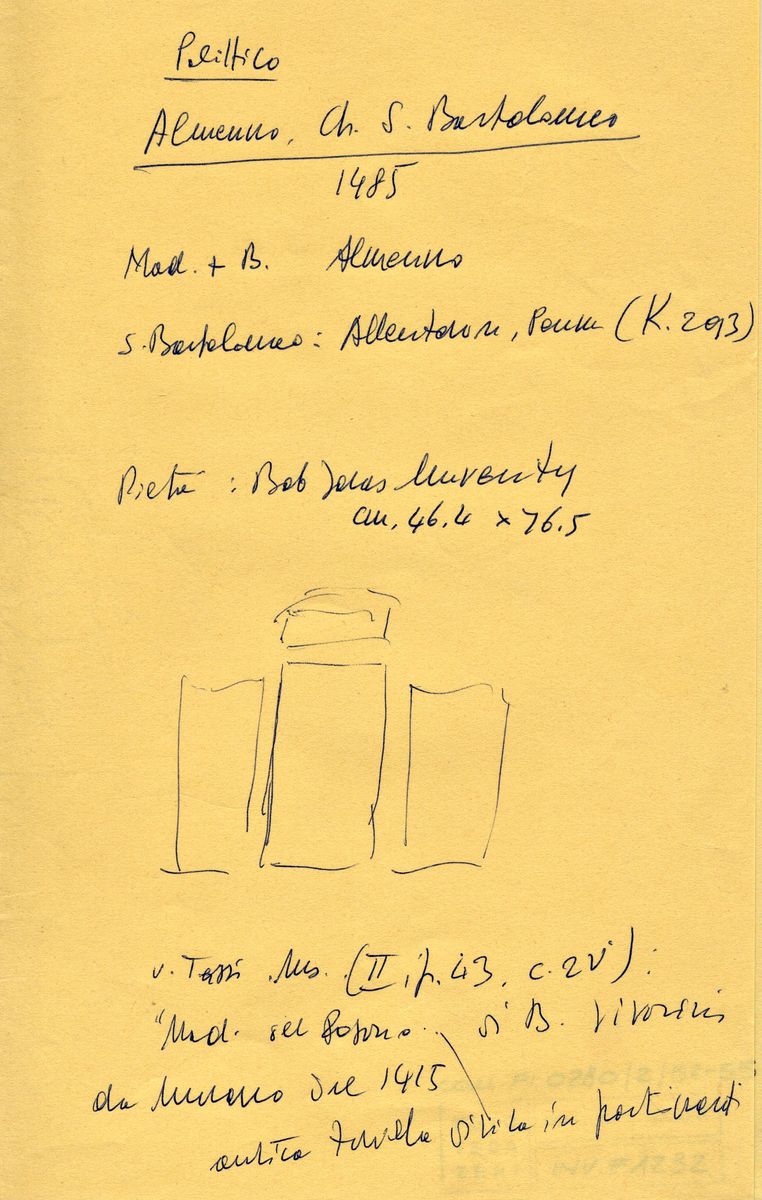 Polittico
Almenno, Ch. S. Bartolomeo
1485
Mad. + B. Almenno
S. Bartolomeo: Allentown, Penn (K. 293)
Pietà : Bob Jones University
cm. 46.4 x 76.5
v. Tassi Ms. (II, p. 43, c. 2v) :
"Mad. del .. di B. Vivarini
da Murano del 1415
antica tavola divisa in parti
INV. F1232